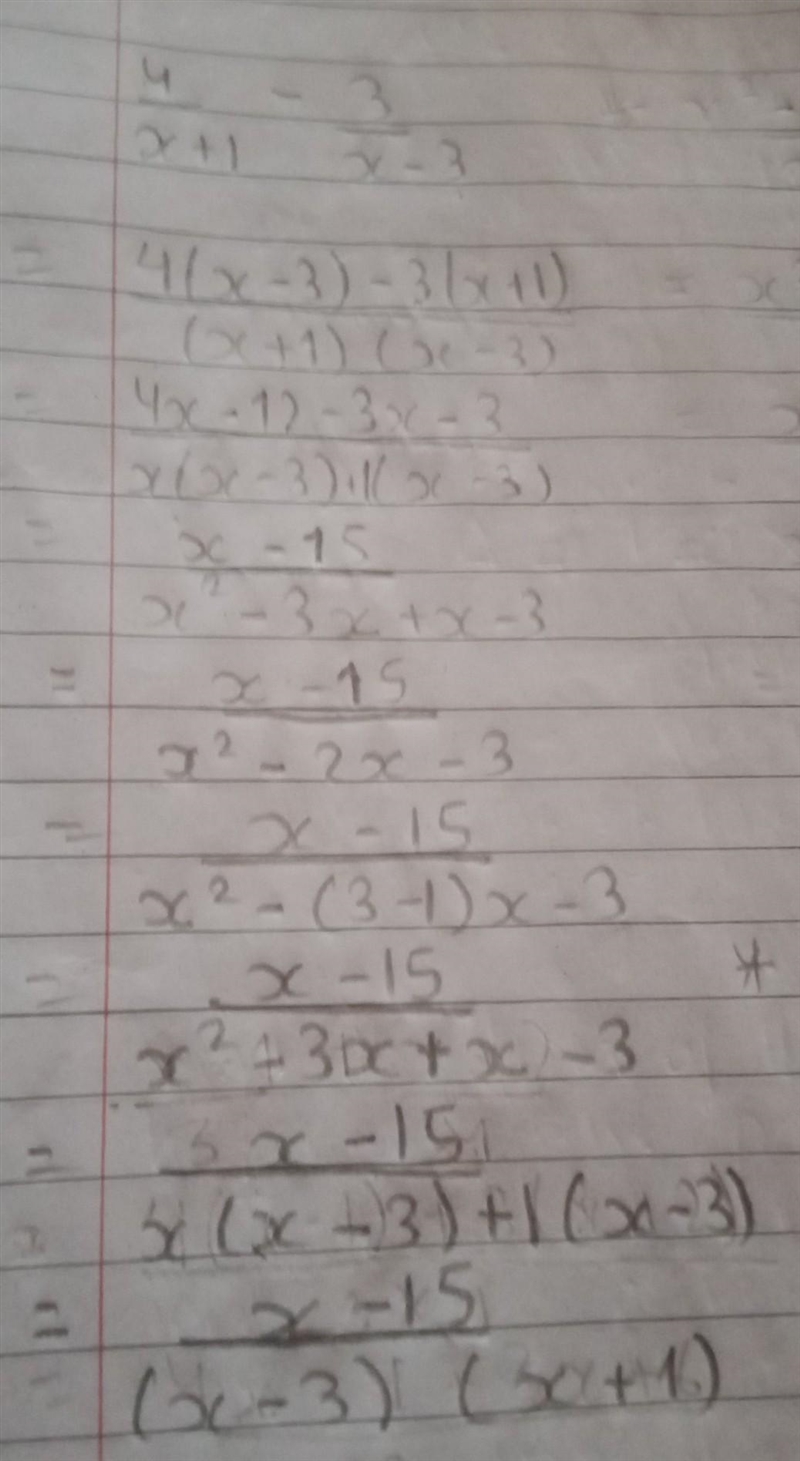 4/(x+1) - 3/(x-3)
= (4(x-3)-3(x+1))/((x+1)(x-3))
= (4x-12-3x-3)/(x(x-3)+1(x-3))
= (x-15)/(x²-3x+x-3)
= (x-15)/(x²-2x-3)
= (x-15)/(x²-(3-1)x-3)
= (x-15)/(x²-3x+x-3) *
= (x-15)/(x(x-3)+1(x-3))
= (x-15)/((x-3)(x+1))